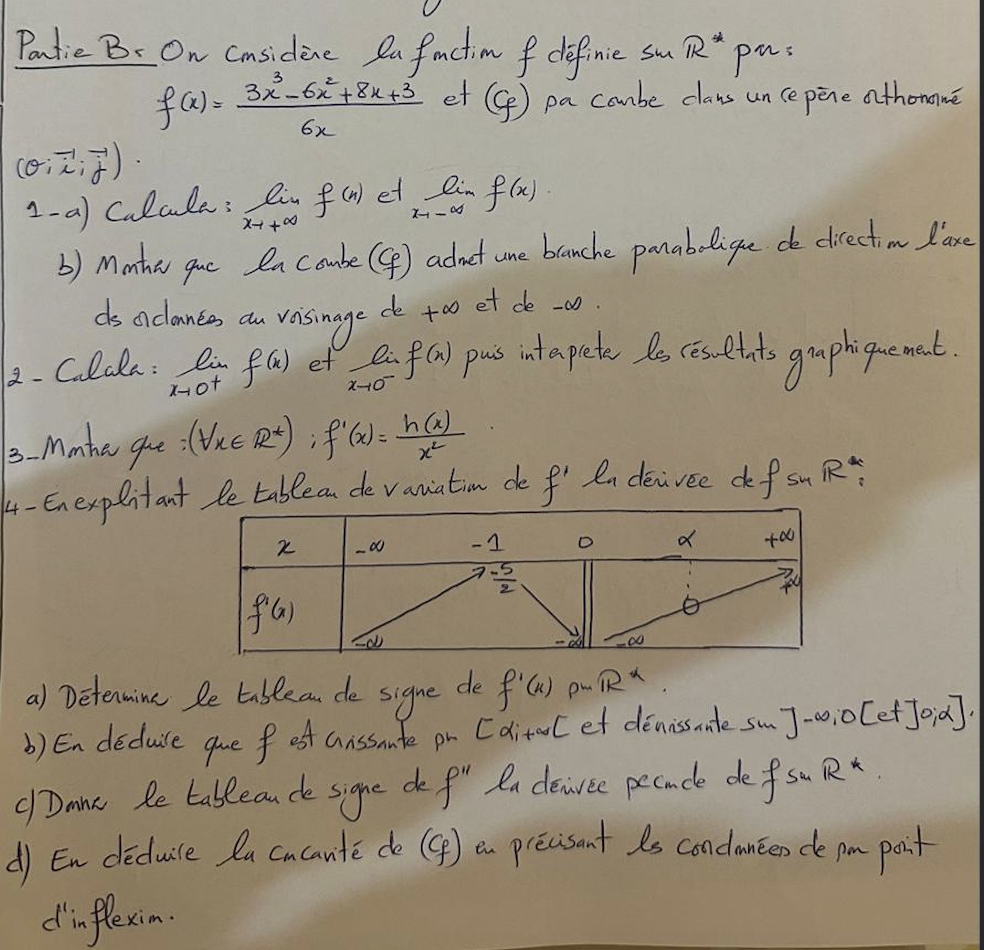 Partie B: On considère la fonction f définie sur ℝ* par:
f(x) = (3x³ - 6x² + 8x + 3) / 6x et (Cf) sa courbe dans un repère orthonormé
(o; i⃗; j⃗).
1-a) Calculer: lim x→+∞ f(x) et lim x→-∞ f(x).
b) Montrer que la courbe (Cf) admet une branche parabolique de direction l'axe
des ordonnées au voisinage de +∞ et de -∞.
2- Calculer: lim x→0⁺ f(x) et lim x→0⁻ f(x) puis interpreter les résultats graphiquement.
3- Montrer que: (∀x∈ℝ*); f'(x) = h(x) / x².
4- En exploitant le tableau de variation de f' la dérivée de f sur ℝ*:
x -∞ -1 0 α +∞
f'(x) -∞ -5/2 -∞ -∞ 0 +∞
a) Déterminer le tableau de signe de f'(x) sur ℝ*.
b) En déduire que f est croissante sur [α;+∞[ et décroissante sur ]-∞;0[ et ]0;α].
c) Donner le tableau de signe de f" la dérivée seconde de f sur ℝ*.
d) En déduire la concavité de (Cf) en précisant les coordonnées de son point
d'inflexion.